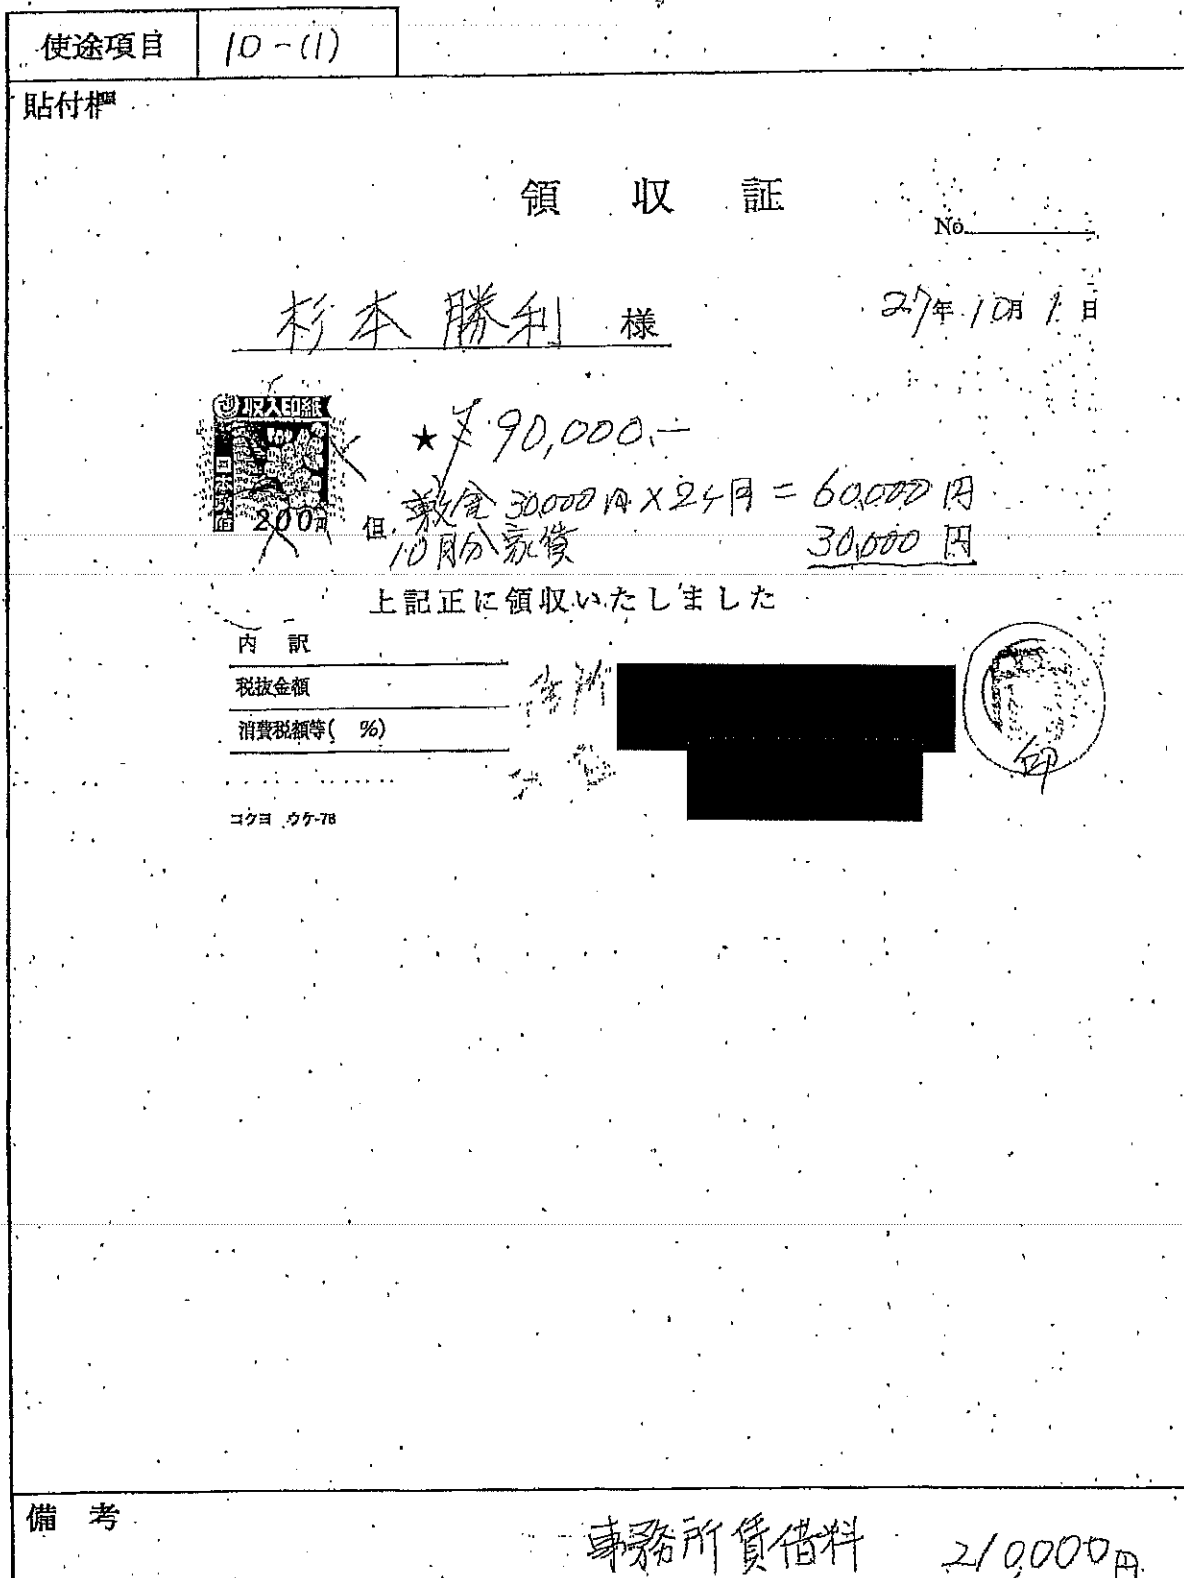 使途項目 10-(1)
貼付欄
領収証
No.
杉本勝利 様
27年10月1日
収入印紙
200円
★ ¥90,000.-
但 敷金 30,000円×2ヶ月 = 60,000円
10月分家賃 30,000円
上記正に領収いたしました
内訳
税抜金額
消費税額等( %)
住所
印
コクヨ ウケ-78
備考
事務所賃借料 210,000円